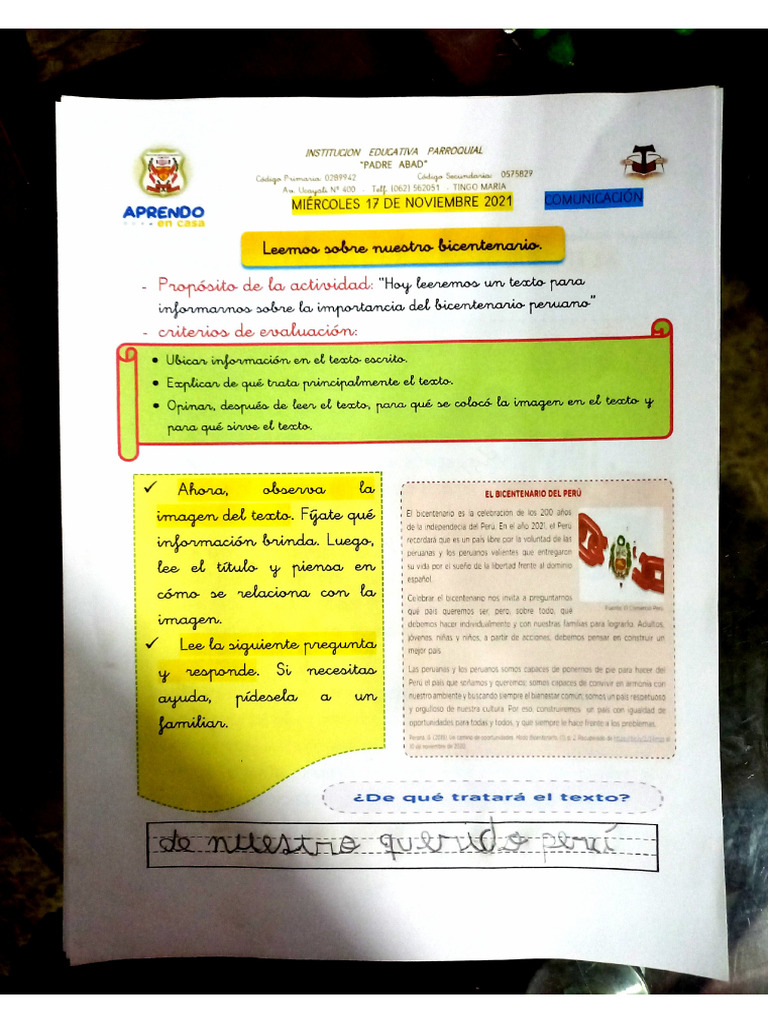 INSTITUCION EDUCATIVA PARROQUIAL
"PADRE ABAD"
Código Primaria: 0289942 Código Secundaria: 0575829
Av. Ucayali Nº 400 - Telf. (062) 562051 - TINGO MARÍA
MIÉRCOLES 17 DE NOVIEMBRE 2021
COMUNICACIÓN
APRENDO
en casa
Leemos sobre nuestro bicentenario.
- Propósito de la actividad: "Hoy leeremos un texto para
informarnos sobre la importancia del bicentenario peruano"
- criterios de evaluación:
• Ubicar información en el texto escrito.
• Explicar de qué trata principalmente el texto.
• Opinar, después de leer el texto, para qué se colocó la imagen en el texto y
para qué sirve el texto.
✓ Ahora, observa la
imagen del texto. Fíjate qué
información brinda. Luego,
lee el título y piensa en
cómo se relaciona con la
imagen.
✓ Lee la siguiente pregunta
y responde. Si necesitas
ayuda, pídesela a un
familiar.
EL BICENTENARIO DEL PERÚ
El bicentenario es la celebración de los 200 años
de la independencia del Perú. En el año 2021, el Perú
recordará que es un país libre por la voluntad de las
peruanas y los peruanos valientes que entregaron
su vida por el sueño de la libertad frente al dominio
español.
Fuente: El Comercio-Perú
Celebrar el bicentenario nos invita a preguntarnos
qué país queremos ser, pero, sobre todo, qué
debemos hacer individualmente y con nuestras familias para lograrlo. Adultos,
jóvenes, niñas y niños, a partir de acciones, debemos pensar en construir un
mejor país.
Las peruanas y los peruanos somos capaces de ponernos de pie para hacer del
Perú el país que soñamos y queremos; somos capaces de convivir en armonía con
nuestro ambiente y buscando siempre el bienestar común; somos un país respetuoso
y orgulloso de nuestra cultura. Por eso, construiremos un país con igualdad de
oportunidades para todas y todos, y que siempre le hace frente a los problemas.
¿De qué tratará el texto?
de nuestro querido perú